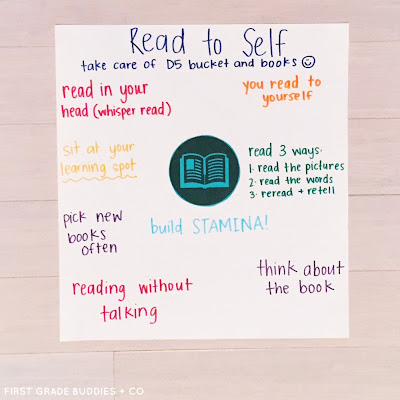 Read to Self
take care of D5 bucket and books
read in your
head (whisper read)
you read to
yourself
sit at your
learning spot
read 3 ways:
1. read the pictures
2. read the words
3. reread + retell
pick new
books
often
build STAMINA!
reading without
talking
think about
the book
FIRST GRADE BUDDIES + CO